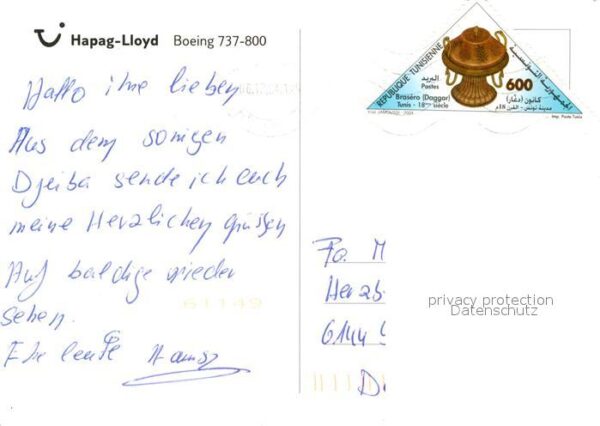 Hapag-Lloyd Boeing 737-800
Hallo ihr lieben
Aus dem sonigen
Djeiba sende ich euch
meine Herzlichen grüssen
Auf baldige wieder
sehen.
REPUBLIQUE TUNISIENNE
الجمهورية التونسية
البريد
Postes
600
Braséro (Daggar)
Tunis - 18ème siècle
كانون (دقار)
مدينة تونس - القرن 18م
2004
Imp. Poste Tunis
Fa. M
Herzb
6144
D
61149
privacy protection
Datenschutz